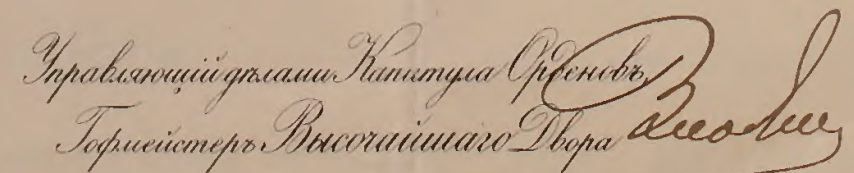 Управляющій дѣлами Капитула Орденовъ,
Гофмейстеръ Высочайшаго Двора